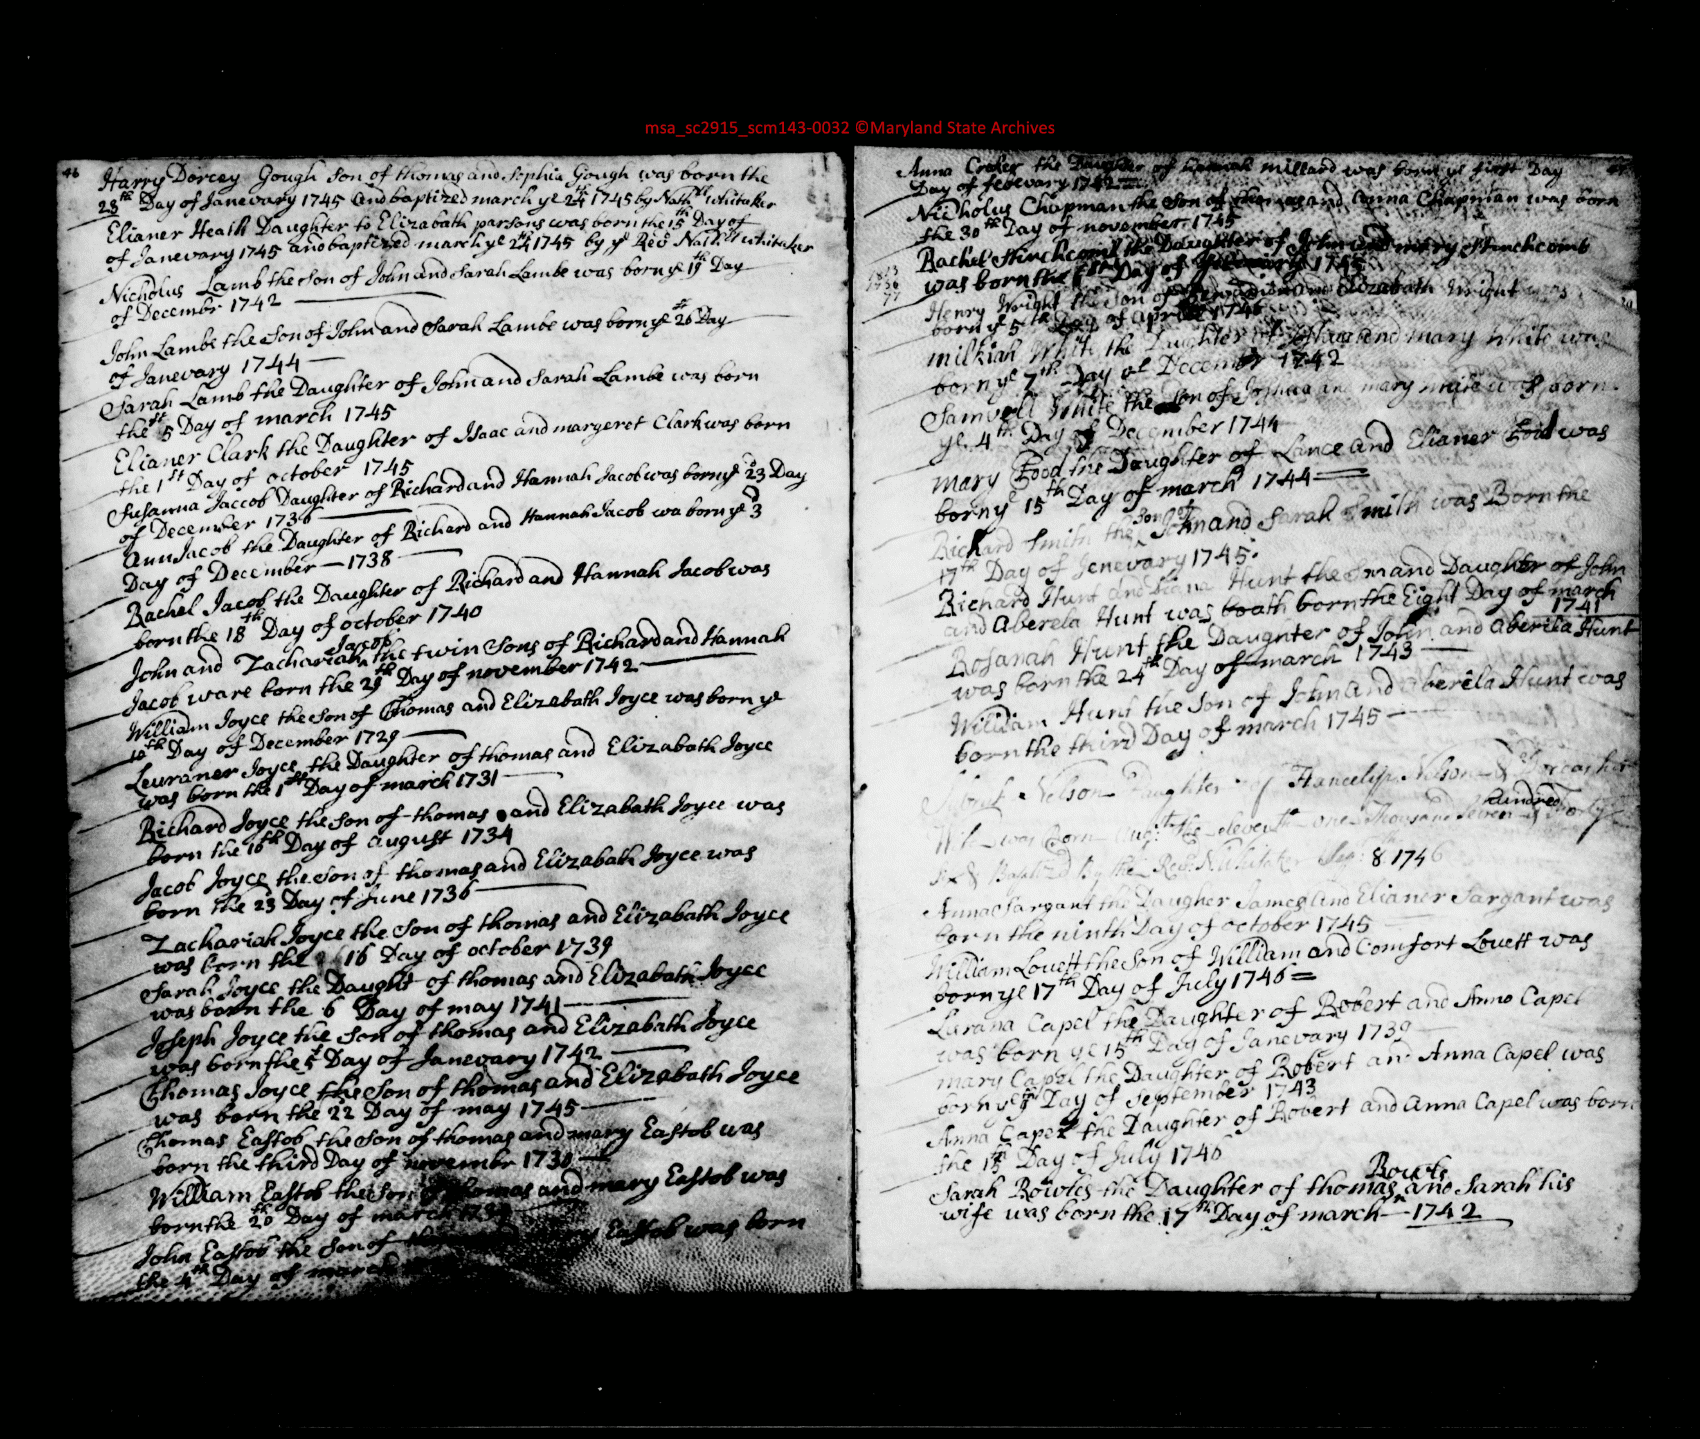 msa_sc2915_scm143-0032 ©Maryland State Archives
46
Harry Dorcey Gough Son of thomas and Sophia Gough was born the
28th Day of Janevary 1745 and baptized march ye 24th 1745 by Nathll whitaker
Elianer Heath Daughter to Elizabath parsons was born the 15th Day of
of Janevary 1745 and baptized march ye 24th 1745 by ye Revd Nathll whitaker
Nicholus Lamb the Son of John and Sarah Lambe was born ye 19th Day
of Decembr 1742
John Lambe the Son of John and Sarah Lambe was born ye 26th Day
of Janevary 1744
Sarah Lamb the Daughter of John and Sarah Lambe was born
the 5 Day of march 1745
Elianer Clark the Daughter of Isaac and margeret Clark was born
the 1st Day of october 1745
Susanna Jaccob Daughter of Richard and Hannah Jacob was born ye 23 Day
of December 1736
Ann Jacob the Daughter of Richard and Hannah Jacob wa born ye 3
Day of December 1738
Rachel Jacob the Daughter of Richard and Hannah Jacob was
born the 18th Day of october 1740
Jacob
John and Zachariah the twin Sons of Richard and Hannah
Jacob ware born the 29th Day of november 1742
William Joyce the Son of Thomas and Elizabath Joyce was born ye
10th Day of December 1729
Leuraner Joyce the Daughter of thomas and Elizabath Joyce
was born the 1st Day of march 1731
Richard Joyce the Son of thomas and Elizabath Joyce was
born the 16th Day of august 1734
Jacob Joyce the Son of thomas and Elizabath Joyce was
born the 23 Day of June 1736
Zachariah Joyce the Son of thomas and Elizabath Joyce
was born the 16 Day of october 1739
Sarah Joyce the Daught of thomas and Elizabath Joyce
was born the 6 Day of may 1741
Joseph Joyce the Son of thomas and Elizabath Joyce
was born the 5 Day of Janevary 1742
Thomas Joyce the Son of thomas and Elizabath Joyce
was born the 22 Day of may 1745
Thomas Eastob the Son of thomas and mary Eastob was
born the third Day of novembr 1730
William Eastob the Son of thomas and mary Eastob was
born the 20th Day of march
John Eastob the Son of Eastob was born
the 4th Day of march
Anna Croker the Daughter of millard was born ye first Day
Day of febevary 1742
Nicholus Chapman the Son of thomas and Anna Chapman was born
the 30th Day of november 1745
Rachel Hinchcomb the Daughter of John and mary Hinchcomb
was born the Day of 1745
Henry Wright the Son of and Elizabath Wright was
born ye 5th Day of April 1746
milkiah White the Daughter of and mary White was
born ye 7th Day of Decembr 1742
Samuell White the Son of Joshua and mary white was born
ye 4th Day of December 1744
mary Tood the Daughter of Lance and Elianer Tood was
born ye 15th Day of march 1744
Son of
Richard Smith the John and Sarah Smith was Born the
17th Day of Jenevary 1745
Richard Hunt and Diana Hunt the Son and Daughter of John
and Aberela Hunt was boath born the Eight Day of march
1741
Rosanah Hunt the Daughter of John and Aberila Hunt
was born the 24th Day of march 1743
William Hunt the Son of John and Aberela Hunt was
born the third Day of march 1745
Nelson Daughter of Nelson &
hundred
Wife was Born Augt the eleventh one Thousand Seven &
six & Baptized By the Revd Whitaker 8 1746
Anna Sargant the Daugher James and Elianer Sargant was
born the ninth Day of october 1745
William Lovett the Son of William and Comfort Lovett was
born ye 17th Day of July 1746
Lurana Capel the Daughter of Robert and Anno Capel
was born ye 15th Day of Janevary 1739
mary Capel the Daughter of Robert and Anna Capel was
born ye Day of September 1743
Anna Capel the Daughter of Robert and Anna Capel was born
the Day of July 1746
Rowls
Sarah Rowles the Daughter of thomas and Sarah his
wife was born the 17th Day of march 1742